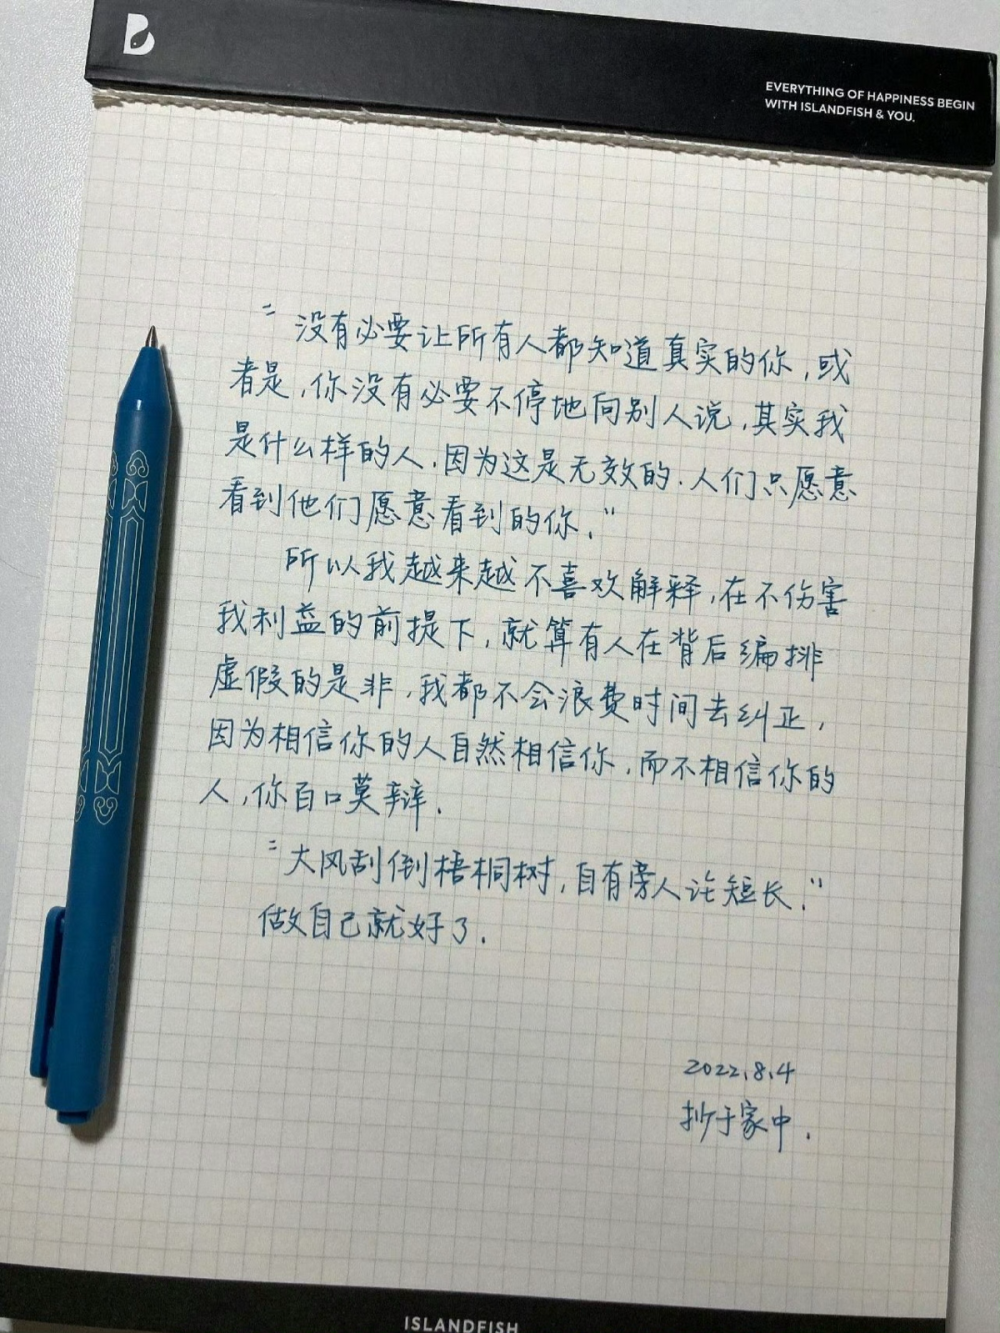 B
EVERYTHING OF HAPPINESS BEGIN
WITH ISLANDFISH & YOU.
“没有必要让所有人都知道真实的你,或
者是,你没有必要不停地向别人说,其实我
是什么样的人.因为这是无效的.人们只愿意
看到他们愿意看到的你.”
所以我越来越不喜欢解释,在不伤害
我利益的前提下,就算有人在背后编排
虚假的是非,我都不会浪费时间去纠正,
因为相信你的人自然相信你,而不相信你的
人,你百口莫辩.
“大风刮倒梧桐树,自有旁人论短长.”
做自己就好了.
2022.8.4
抄于家中.
ISLANDFISH